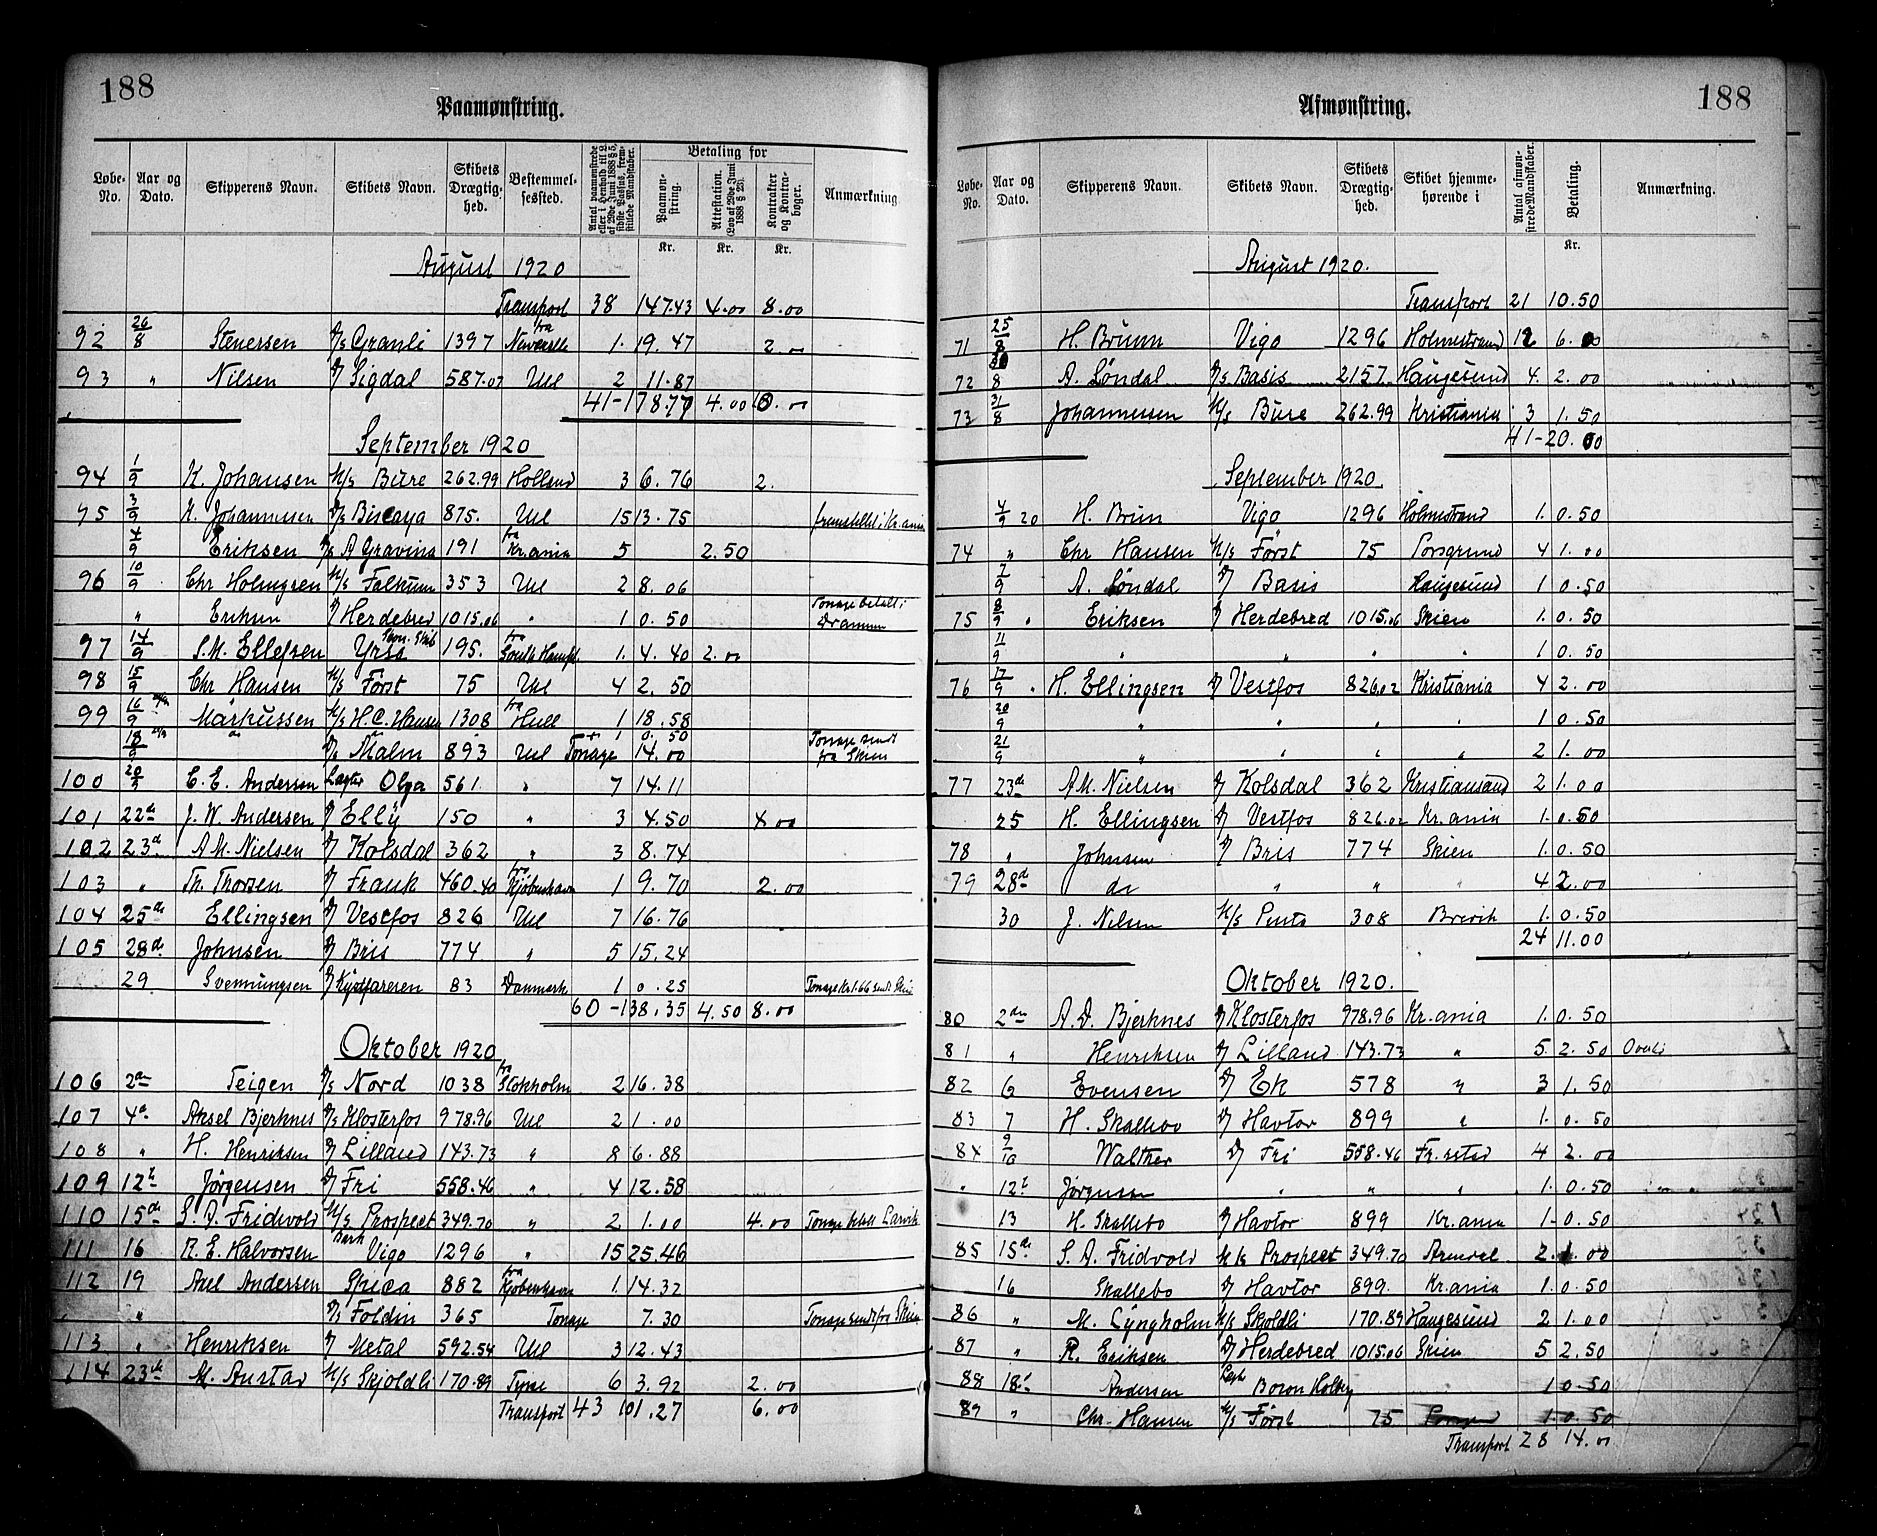 188
Paamønstring.
Løbe-No.
Aar og Dato.
Skipperens Navn.
Skibets Navn.
Skibets Drægtighed.
Bestemmelsessted.
Antal paamønstrede eller i Henhold til L. af 29de Juni 1888 § 5, sidste Passus, fremstillede Mandskaber.
Betaling for
Paamønstring.
Attestation. (Lov af 29de Juni 1888 § 23).
Kontrakter og Kontrabøger.
Anmærkning.
Kr. Kr. Kr.
August 1920
Transport 38 147.43 4.00 8.00
92 26/8 Stenersen D/s Granli 1397 fra Newcastle 1. 19.47 2.00
93 " Nilsen D/ Sigdal 587.07 Utl 2 11.87
41-178.77 4.00 10.00
September 1920
94 1/9 K. Johansen M/s Bure 262.99 Holland 3 6.76 2.
95 3/9 K. Johannessen D/s Biscaya 875. Utl 15 13.75 fremstillet i Kr.ania
4/9 Eriksen D/s A Gravina 191 fra Kr.ania 5 2.50
96 10/9 Chr Holmgren M/s Falkum 353 Utl 2 8.06
" Eriksen D/ Herdebred 1015.06 " 1 0.50 Tonage betalt i Drammen
97 14/9 S.M. Ellefsen Skon. Skib Yrsa 195. fra South Hampt. 1. 4.40 2.00
98 15/9 Chr Hansen M/s Först 75 Utl 4 2.50
99 16/9 Markussen M/s H.C. Hansen 1308 fra Hull 1 18.58
do do " 1 0.50
18/9 D/s Malm 893 Utl Tonage 14.00 Tonage sendt fra Skien
100 20/9 C.E. Andersen Lægter Olga 561 " 7 14.11
101 22de J.W. Andersen D/ Elly 150 " 3 4.50 4.00
102 23d AM. Nielsen D/ Kolsdal 362 " 3 8.74
103 " Th. Thorsen D/ Frank 460.40 fra Kjöbenhavn 1 9.70 2.00
104 25de Ellingsen D/ Vestfos 826 Utl 7 16.76
105 28d. Johnsen D/ Bris 774 " 5 15.24
29 Svennungsen D/ Kystfareren 83 Danmark 1 0.25 Tonage Kr. 1.66 sendt Skien
60-138.35 4.50 8.00
Oktober 1920
106 2den Teigen D/s Nord 1038 fra Stokholm 2 16.38
107 4d. Aksel Bjerknes D/s Klosterfos 978.96 Utl 2 1.00
108 " H. Henriksen D/ Lilland 143.73 " 8 6.88
109 12t Jörgensen D/ Fri 558.46 " 4 12.58
110 15de S.A. Fridvold M/s Prospect 349.70 " 2 1.00 4.00 Tonage betalt Larvik
111 16 R.E. Halvorsen Bark Vigo 1296 " 15 25.46
112 19 Axel Andersen Spica 882 fra Kjöbenhavn 1. 14.32
" " D/s Foldin 365 Tonage 7.30 Tonage sendt fra Skien
113 " Henriksen D/ Metal 592.54 Utl 3 12.43
114 23de M. Austad M/s Skjoldli 170.89 Tyne 6 3.92 2.00
Transport 43 101.27 6.00
188
Afmønstring.
Løbe-No.
Aar og Dato.
Skipperens Navn.
Skibets Navn.
Skibets Drægtighed.
Skibet hjemmehørende i
Antal afmønstrede Mandskaber.
Betaling.
Anmærkning.
Kr.
August 1920.
Transport 21 10.50
71 25/8 H. Brunn Vigo 1296 Holmestrand 12 6.00
72 30/8 A. Löndal D/s Basis 2157. Haugesund 4. 2.00
73 31/8 Johannessen M/s Bure 262.99 Kristiania 3 1.50
41-20.50
September 1920.
4/9 20 H. Brun Vigo 1296 Holmestrand 1. 0.50
74 " Chr Hansen M/s Först 75 Porsgrund 4 1.00
7/9 A. Löndal D/ Basis Haugesund 1 0.50
75 8/9 " Eriksen D/ Herdebred 1015.06 Skien 1. 0.50
11/9 " " " " 1 0.50
76 17/9 " H. Ellingsen D/ Vestfos 826.02 Kristiania 4 2.00
20/9 " " " " 1 0.50
21/9 " " " " 2 1.00
77 23de AM. Nielsen D/ Kolsdal 362 Kristiansand 2 1.00
25 H. Ellingsen D/ Vestfos 826.02 Kr.ania 1. 0.50
78 " Johnsen D/ Bris 774 Skien 1. 0.50
79 28d do " " " 4 2.00
30 J. Nilsen M/s Penta 308 Brevik 1. 0.50
24 11.00
Oktober 1920.
80 2den A.D. Bjerknes D/ Klosterfos 978.96 Kr.ania 1. 0.50
81 " Henriksen D/ Lilland 143.73 " 5. 2.50
82 6 Evensen D/ Ek 578 " 3 1.50
83 7 H. Skallebo D/ Havtor 899 " 1. 0.50
84 9/10 Walther D/ Fri 558.46 Fr.stad 4 2.00
" 12t Jorgensen " " " 1. 0.50
13 H. Skallebo D/ Havtor 899 Kr.ania 1- 0.50
85 15de S.A. Fridvold M/s Prospect 349.70 Arendal 2. 1.00
16 Skallebo D/ Havtor 899. Kr.ania 1. 0.50
86 " M. Lyngholm M/s Skoldli 170.89 Haugesund 2 1.00
87 " R. Eriksen D/ Herdebred 1015.06 Skien 5 2.50
88 18d Andersen Boron Holby 1 0.50
89 " Chr. Hansen M/s Först 75 1. 0.50
Transport 28 14.00